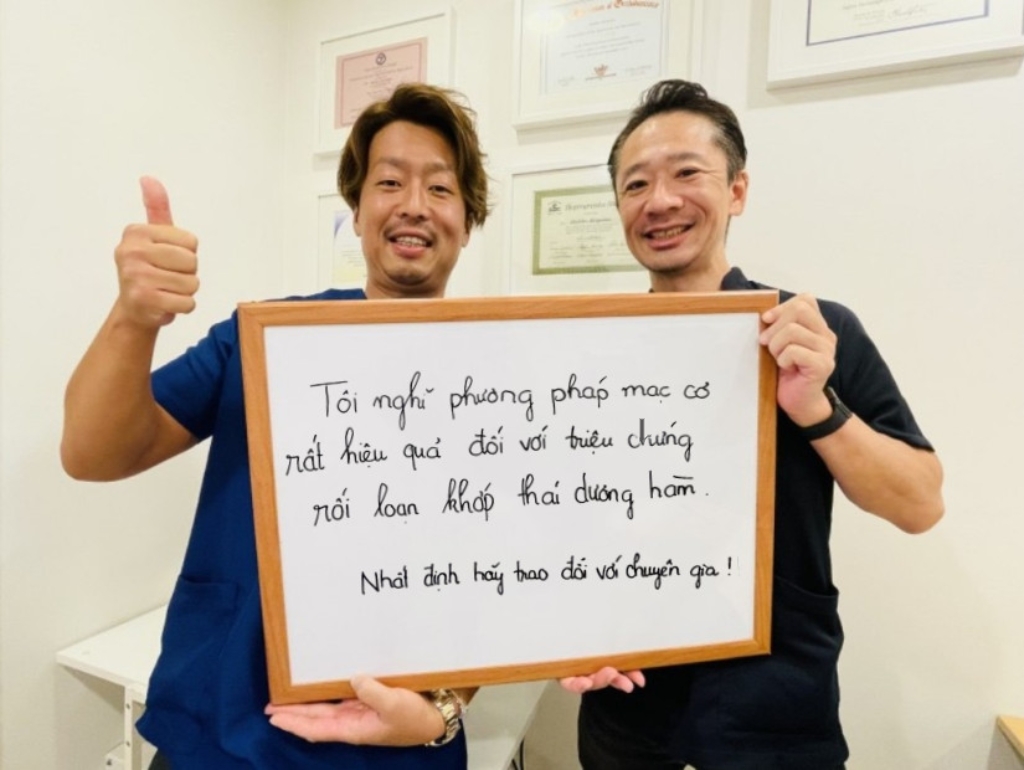 Tôi nghĩ phương pháp mạc cơ
rất hiệu quả đối với triệu chứng
rối loạn khớp thái dương hàm.
Nhất định hãy trao đổi với chuyên gia !